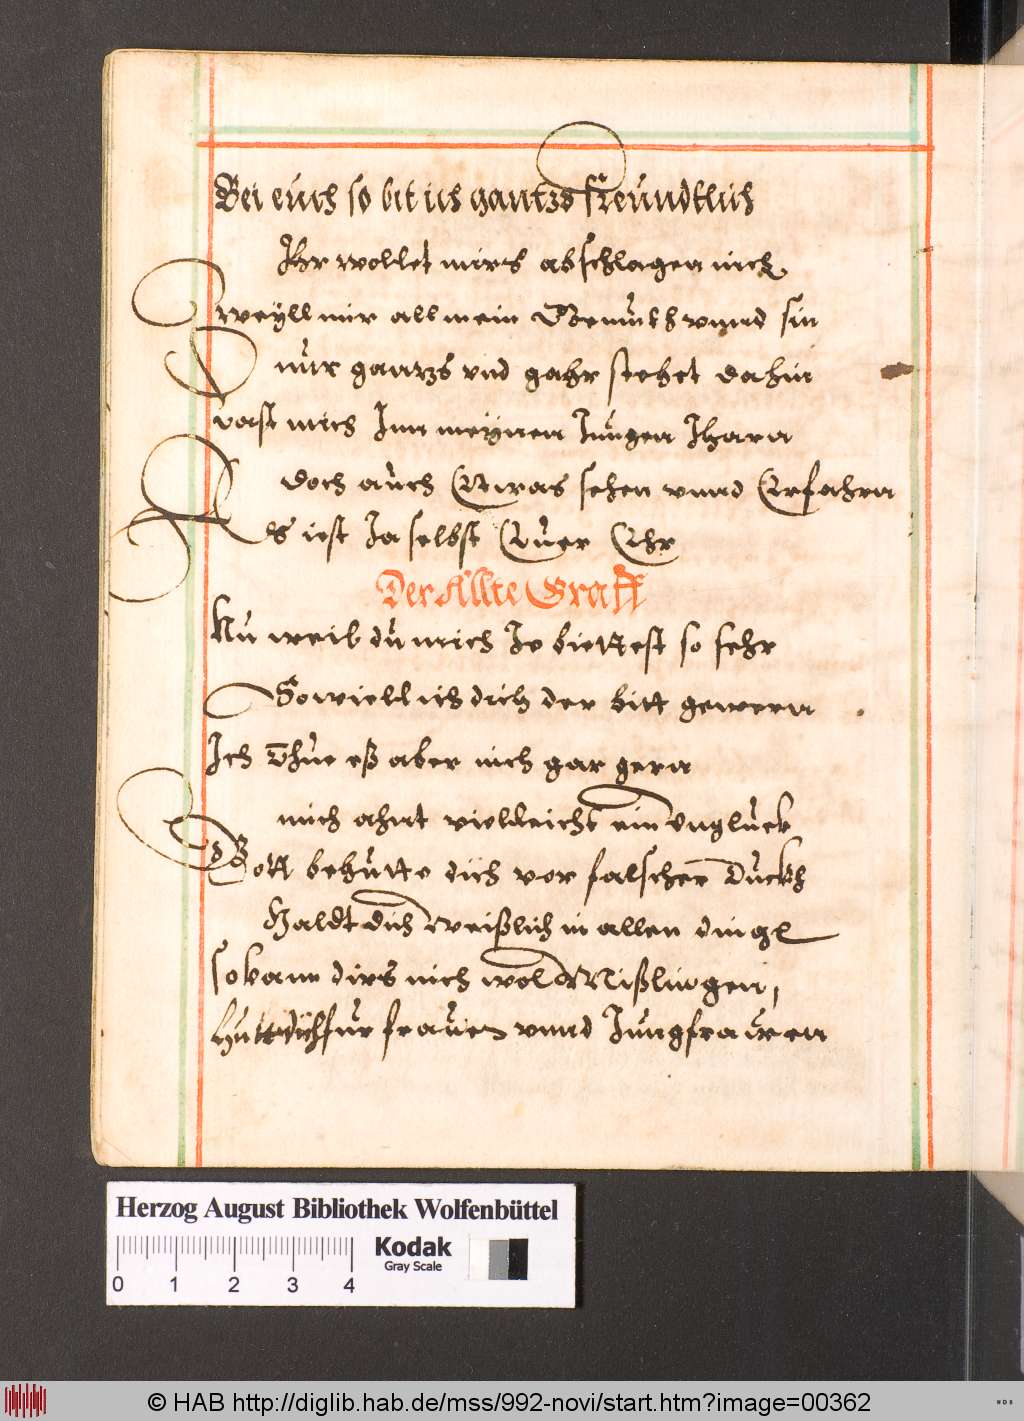 Bei euch so bit ich gantzs freundtlich
Ihr wollet mirs abschlagen nich.
weyll mir all mein Gemuth vnnd sin
nur gantzs vnd gahr stehet dahin
Last mich Inn meynen Jungen Jharn
doch auch Ettwas sehen vnnd Erfahrn
Es iest Ja selbst Euer Ehr
Der Allte Graff
Nu weil du mich Je biettest so sehr
So wiell ich dich der bitt gewern
Ich Thue eß aber nich gar gern
mich ahnt vielleicht ein vngluck
Gott behutte dich vor falscher Duckh
Haldt dich Weißlich in allen ding
so kann dirs nich wol Mißlingen,
Hutt dich fur frauen vnnd Jungfrawen
Herzog August Bibliothek Wolfenbüttel
Kodak
Gray Scale
0 1 2 3 4
© HAB http://diglib.hab.de/mss/992-novi/start.htm?image=00362